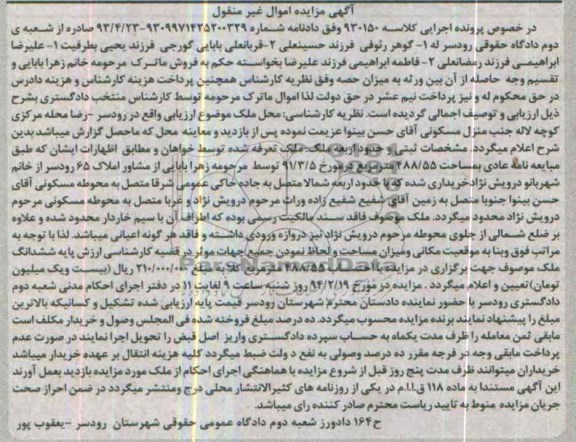 آگهی مزایده اموال غیر منقول
در خصوص پرونده اجرایی کلاسه ۹۳۰۱۵۰ وفق دادنامه شماره ۹۳۰۹۹۷۱۴۲۵۲۰۰۳۲۹-۹۳/۴/۲۳ صادره از شعبه ی
دوم دادگاه حقوقی رودسر له ۱- گوهر رئوفی فرزند حسینعلی ۲-قربانعلی بابایی گورجی فرزند یحیی بطرفیت ۱- علیرضا
ابراهیمی فرزند رمضانعلی ۲- فاطمه ابراهیمی فرزند علیرضا بخواسته حکم به فروش ماترک مرحومه خانم زهرا بابایی و
تقسیم وجه حاصله از آن بین ورثه به میزان حصه وفق نظریه کارشناس همچنین پرداخت هزینه کارشناس و هزینه دادرسی
در حق محکوم له و نیز پرداخت نیم عشر در حق دولت لذا اموال ماترک مرحومه توسط کارشناس منتخب دادگستری بشرح
ذیل ارزیابی و توصیف اجمالی گردیده است. نظریه کارشناسی: محل ملک موضوع ارزیابی واقع در رودسر -رضا محله مرکزی
کوچه لاله جنب منزل مسکونی آقای حسن بینوا عزیمت نموده پس از بازدید و معاینه محل که ماحصل گزارش میباشد بدین
شرح اعلام میگردد. مشخصات ثبتی و حدود اربعه ملک: ملک تعرفه شده توسط خواهان و مطابق اظهارات ایشان که طبق
مبایعه نامه عادی بمساحت ۴۸۸/۵۵ مترمربع در مورخ ۹۱/۳/۵ توسط مرحومه زهرا بابایی از مشاور املاک ۶۵ رودسر از خانم
شهربانو درویش نژاد خریداری شده که با حدود اربعه شمالا متصل به جاده خاکی عمومی شرقا متصل به محوطه مسکونی آقای
حسن بینوا جنوبا متصل به زمین آقای شفیع شفیع زاده وراث مرحوم درویش نژاد و غربا متصل به محوطه مسکونی مرحوم
درویش نژاد محدود میگردد. ملک موصوف فاقد سند مالکیت رسمی بوده که اطراف آن با سیم خاردار محدود شده و علاوه
بر ضلع شمالی از جلوی محوطه مرحوم درویش نژاد نیز دروازه ورودی داشته و فاقد هر گونه اعیانی میباشد. لذا با توجه به
مراتب فوق وبنا به موقعیت مکانی ومیزان مساحت و لحاظ نمودن جمیع جهات موثر در قضیه کارشناسی ارزش پایه ششدانگ
ملک موصوف جهت برگزاری در مزایده ۴۸۸/۵۵ متر مربع کلا به مبلغ ۲۱۰/۰۰۰/۰۰۰ ریال (بیست ویک میلیون
تومان) تعیین و اعلام میگردد . مزایده در مورخ ۹۴/۲/۱۹ روز شنبه ساعت ۹ لغایت ۱۱ در دفتر اجرای احکام مدنی شعبه دوم
دادگستری رودسر با حضور نماینده دادستان محترم شهرستان رودسر قیمت پایه ارزیابی شده تشکیل و کسانیکه بالاترین
مبلغ را پیشنهاد نمایند برنده مزایده محسوب میگردد. ده درصد مبلغ فروخته شده فی المجلس وصول و خریدار مکلف است
مابقی ثمن معامله را ظرف مدت یکماه به حساب سپرده دادگستری واریز اصل قبض را تحویل اجرا نمایند در صورت عدم
پرداخت مابقی وجه در فرجه مقرر ده درصد وصولی به نفع دولت ضبط میگردد کلیه هزینه انتقال بر عهده خریدار میباشد
خریداران میتوانند ظرف مدت پنج روز قبل از شروع مزایده با هماهنگی اجرای احکام از ملک مورد مزایده بازدید بعمل آورند
این آگهی مستندا به ماده ۱۱۸ ق.ا.ا.م در یکی از روزنامه های کثیرالانتشار محلی درج ومنتشر میگردد در ضمن احراز صحت
جریان مزایده منوط به تایید ریاست محترم صادر کننده رای میباشد.
ح۱۶۴ دادورز شعبه دوم دادگاه عمومی حقوقی شهرستان رودسر -یعقوب پور